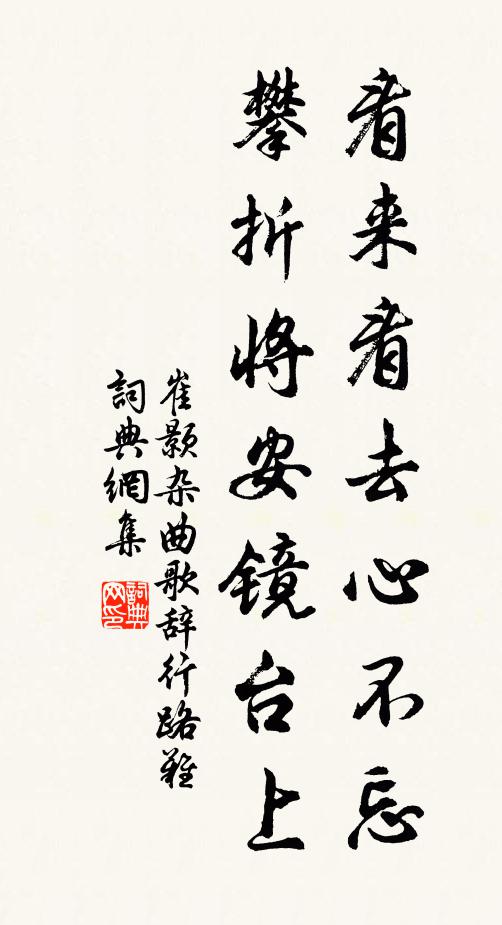 看来看去心不忘
攀折将安镜台上
崔颢杂曲歌辞行路難
詞典網集
詞典
网印